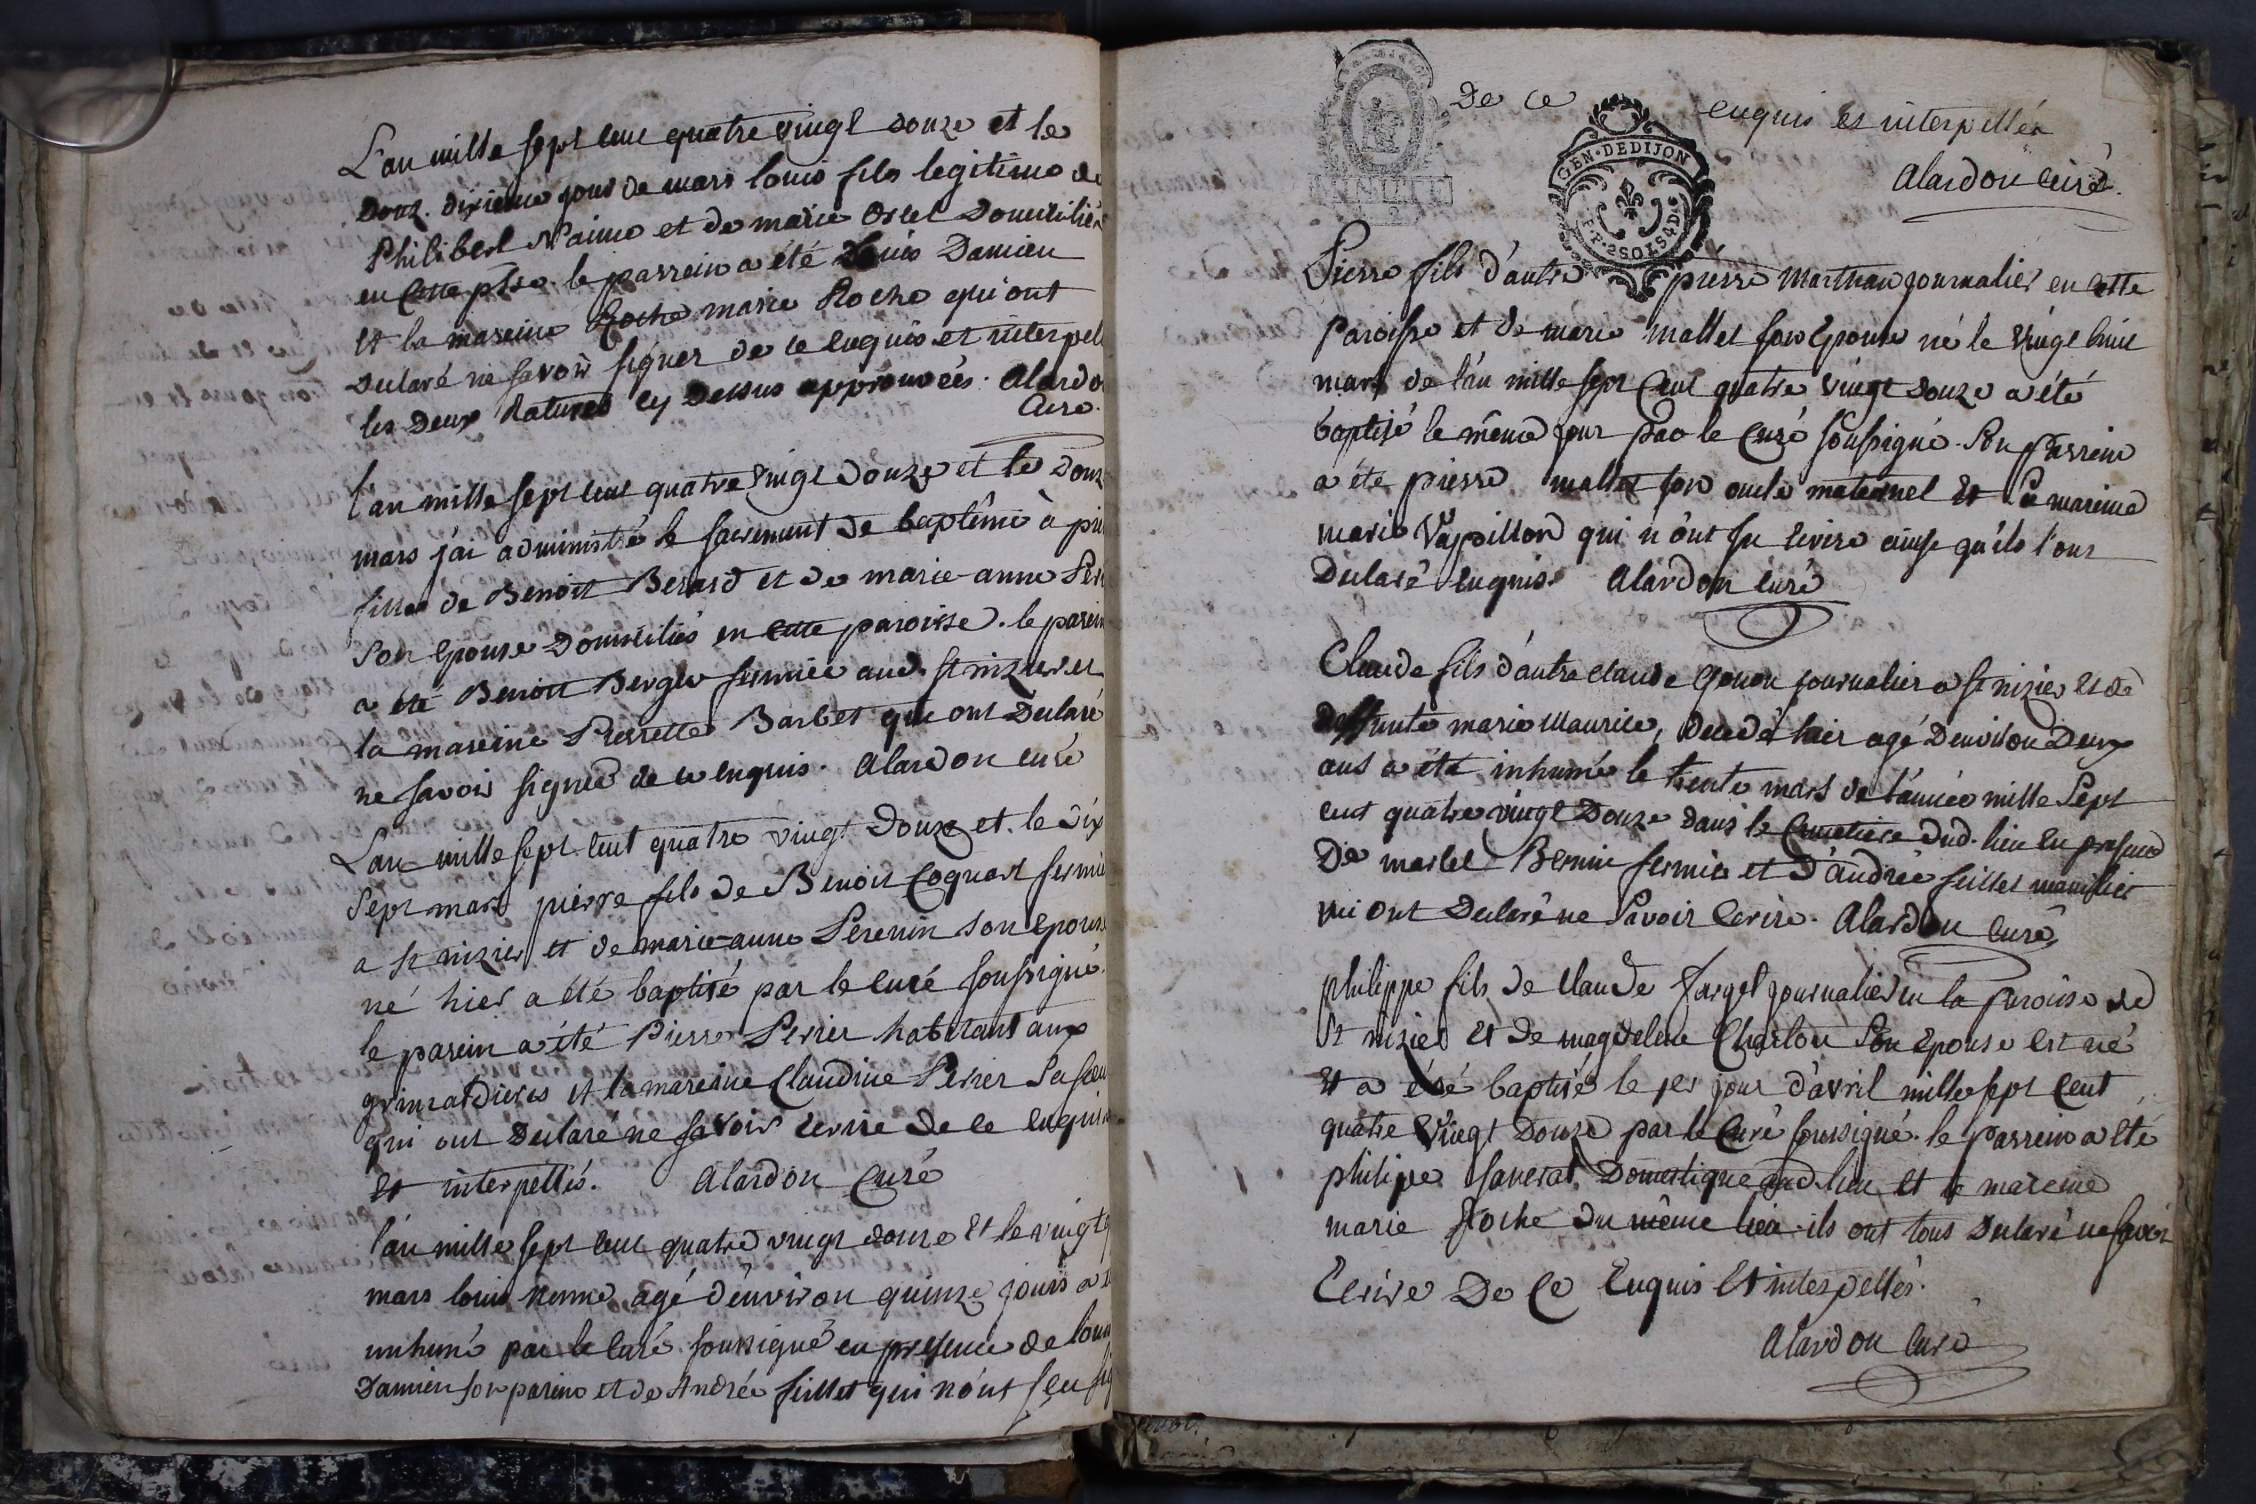 L'an mille sept cent quatre vingt douze et le
douz. dixieme jour de mars louis fils legitime de
Philibert N'aime et de marie ortet Domiciliés
en cette psse. le parrein a été Louis Damien
et la mareine Roche marie Roche qui ont
declaré ne savoir signer de ce enquis et interpel
les deux Ratures cy dessus approuvées. Alardo
Curé.
l'an mille sept cent quatre vingt douze et le douz
mars j'ai administré le sacrement de baptême à pie
fille de Benoit Berard et de marie-anne Per
son epouse Domiciliés en cette paroisse. le parein
a été Benoit Berger fermier aud. st nizier et
la mareine Pierrette Barbet qui ont declaré
ne savoir signer de ce enquis. Alardon curé
L'an mille sept cent quatre vingt douze et le dix
sept mars pierre fils de Benoit Coquart fermie
a st nizier et de marie-anne Perenin son epouse
né hier a été baptisé par le curé soussigné.
le parein a été Pierre Perier habitant aux
grimardieres et la mareine Claudine Perier sa soeu
qui ont declaré ne savoir ecrire de ce enquis
et interpellés. Alardon Curé
l'an mille sept cent quatre vingt douze et le vingt
mars louis neme agé d'environ quinze jours a
inhumé par le curé soussigné en presence de loui
Damien son parein et de André feillet qui n'ont sçu sig
de ce enquis et interpellés
Alardon Curé.
Pierre fils d'autre pierre Marthan journalier en cette
Paroisse et de marie mallet son Epouse né le vingt huit
mars de l'an mille sept cent quatre vingt douze a été
baptisé le même jour par le Curé soussigné. Son Parrein
a été pierre mallet son oncle maternel et la mareine
marie Vapillon qui n'ont su ecrire ainsi qu'ils l'ont
declaré enquis. Alardon curé
Claude fils d'autre claude Gonon journalier a st nizier et de
deffunte marie Maurice, decedé hier agé d'environ deux
ans a été inhumé le trente mars de l'année mille sept
cent quatre vingt douze dans le Cimetiere dud. lieu en presence
De martel Bernin fermier et d'andré feillet manillier
qui ont declaré ne savoir ecrire. Alardon curé
philippe fils de claude farget journalier en la paroisse de
st nizier et de magdelene Charlon son epouse est né
et a été baptisé le 1er jour d'avril mille sept cent
quatre vingt douze par le Curé soussigné. le parrein a été
philippe saverat Domestique aud. lieu et la mareine
marie Roche du même lieu. ils ont tous declaré ne savoir
Ecrire de ce Enquis et interpellés.
Alardon curé
GEN·DEDIJON
P.P. 2 SOLS 4 D.